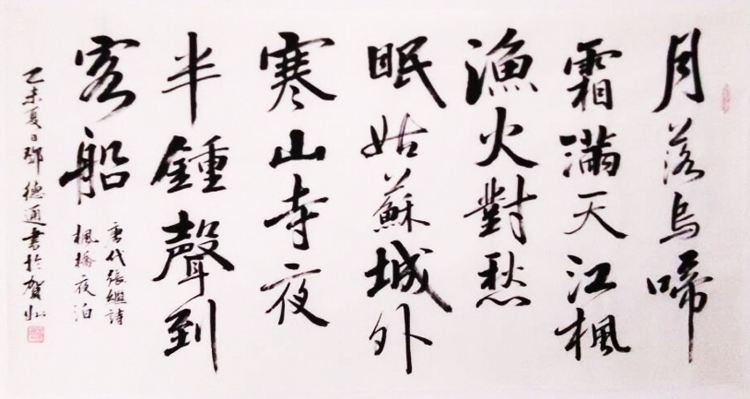 月落烏啼
霜滿天江楓
漁火對愁
眠姑蘇城外
寒山寺夜
半鍾聲到
客船
唐代張繼詩
楓橋夜泊
乙未夏日鄧德通書於賀州